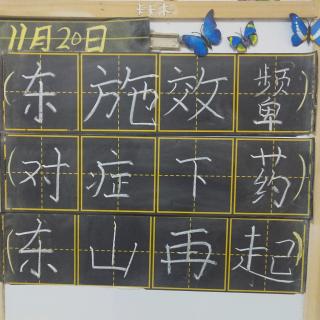 11月20日
(东施效颦)
(对症下药)
(东山再起)